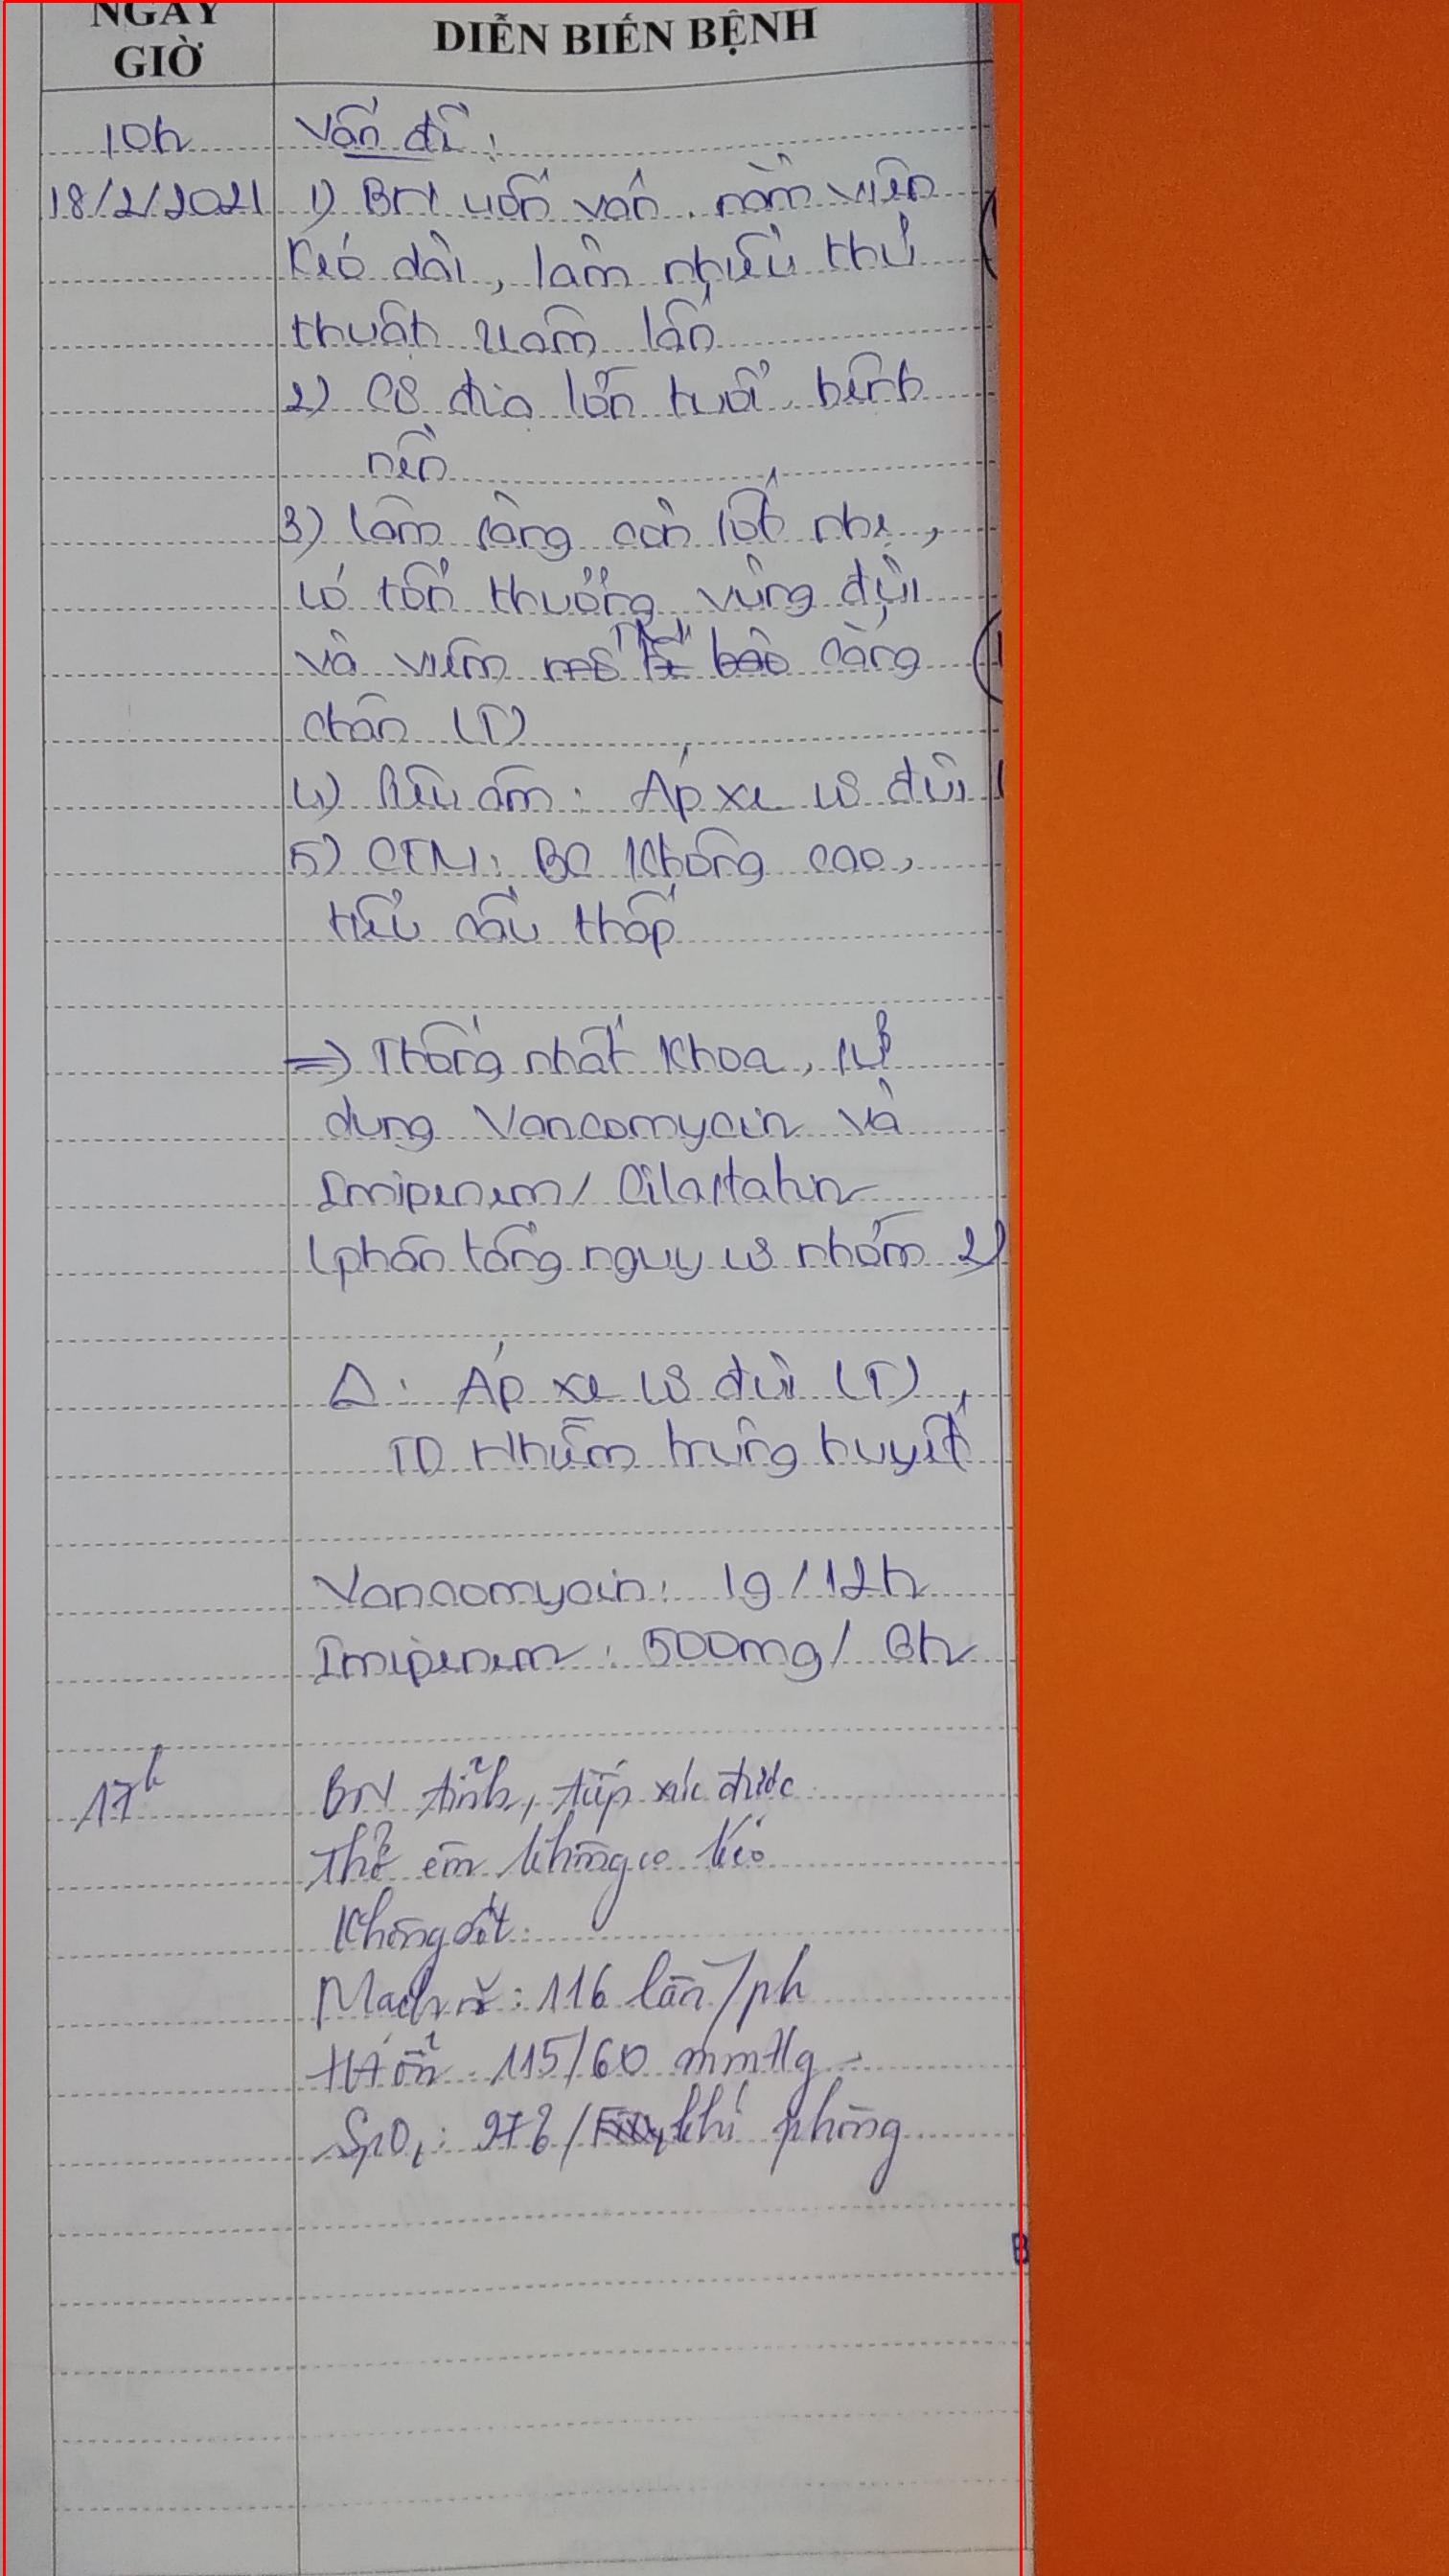 NGÀY
GIỜ
DIỄN BIẾN BỆNH
10h
Vấn đề:
18/2/2021
1) BN uốn ván, nằm viện
kéo dài, làm nhiều thủ
thuật xâm lấn
2) Cơ địa lớn tuổi, bệnh
nền
3) Lâm sàng còn sốt nhẹ,
có tổn thương vùng đùi
và viêm cẳng
chân (T)
4) Siêu âm: Áp xe cơ đùi
5) CTM: BC không cao,
tiểu cầu thấp
=> Thống nhất khoa, sử
dụng Vancomycin và
Imipenem/ Cilastatin
(phân tầng nguy cơ nhóm 2)
Δ: Áp xe cơ đùi (T),
TD Nhiễm trùng huyết
Vancomycin: 1g/12h
Imipenem: 500mg/ 6h
17h
BN tỉnh, tiếp xúc được
Thở êm không co kéo
Không sốt
Mạch rõ: 116 lần/ph
HA ổn: 115/60 mmHg
SpO2: 97% / khí phòng
B